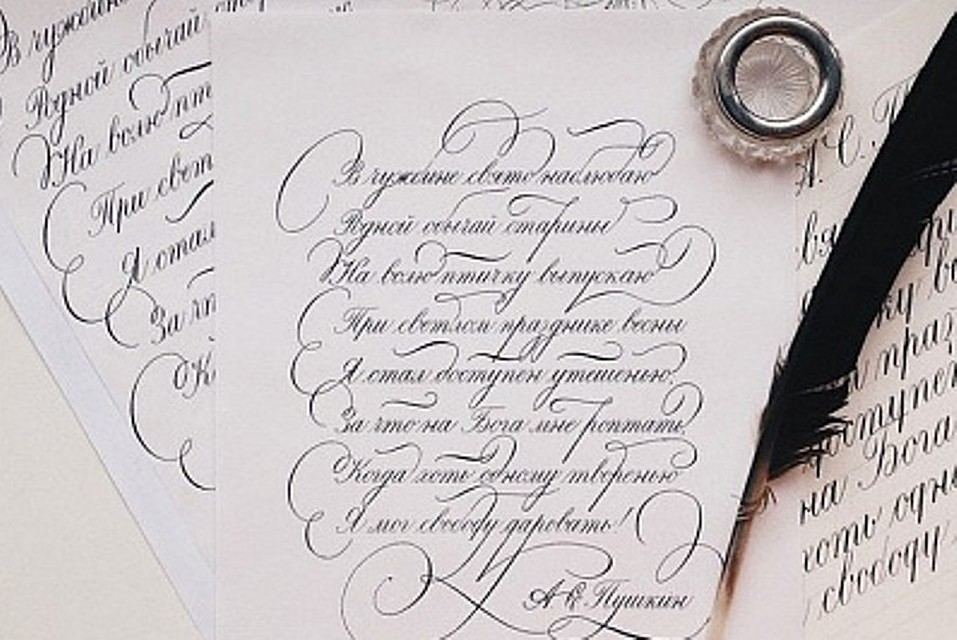 В чужбине свято наблюдаю
Родной обычай старины
На волю птичку выпускаю
При светлом празднике весны
Я стал доступен утешенью;
За что на Бога мне роптать,
Когда хоть одному творенью
Я мог свободу даровать!
А. С. Пушкин
В чужбине
Родной обычай
На волю пт
При свет
Я стал
За чт
К
А. С. П
ку
праз
доступен
на Бога
хоть одн
свободу